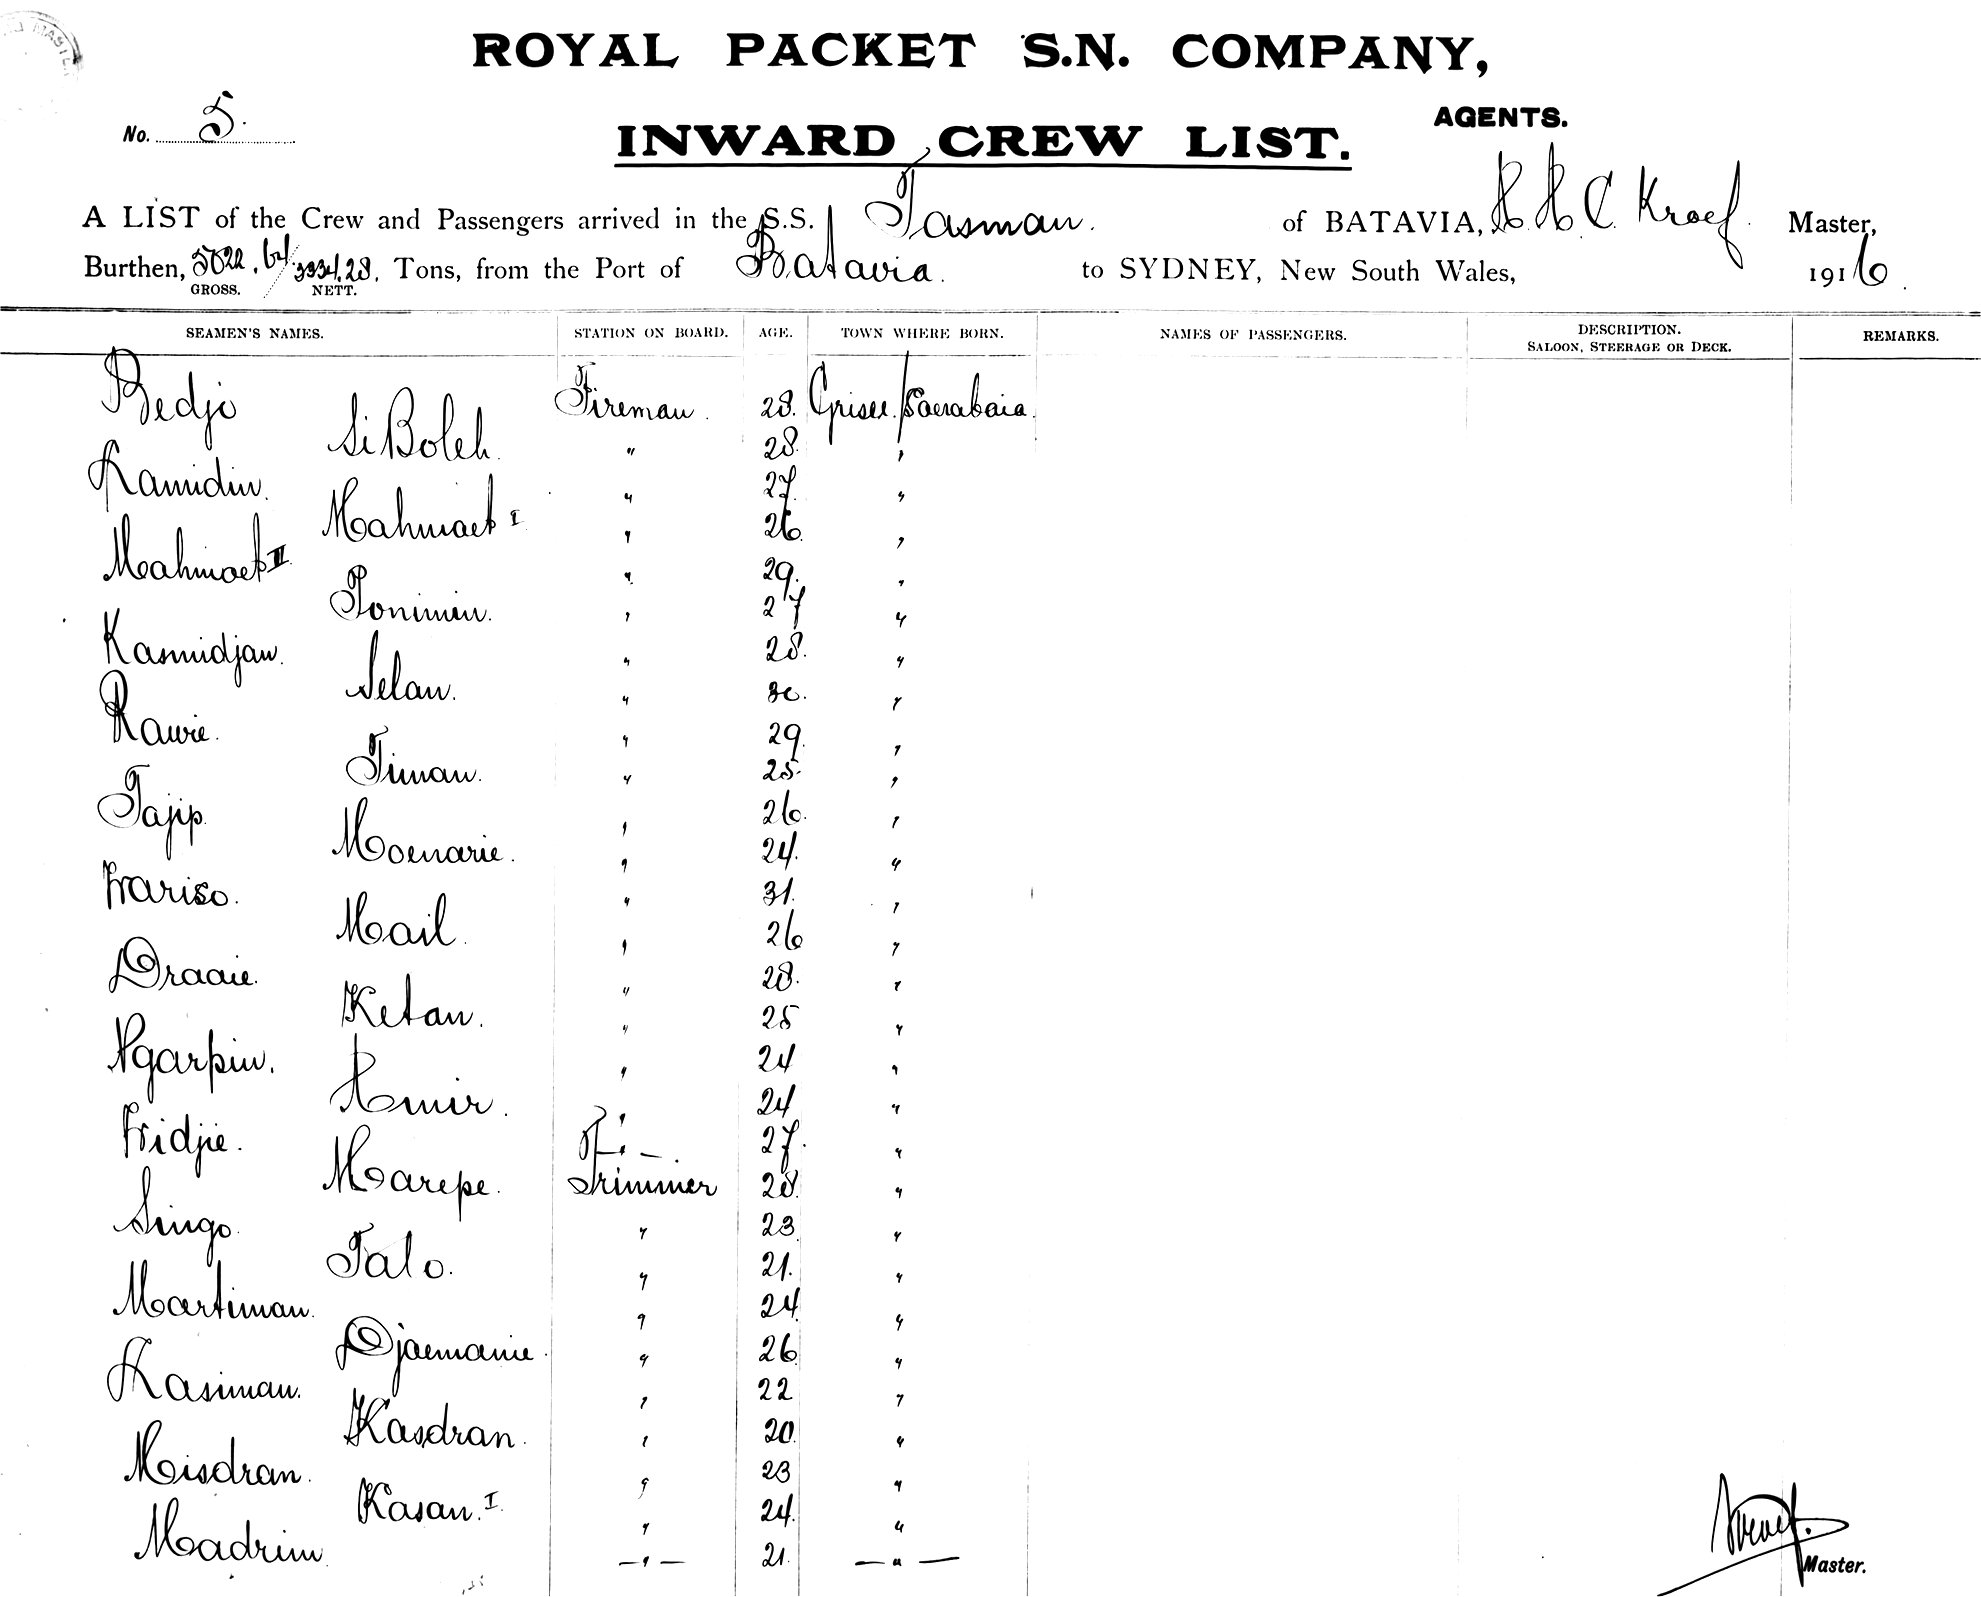 ROYAL PACKET S.N. COMPANY,
AGENTS.
No. 5.
INWARD CREW LIST.
A LIST of the Crew and Passengers arrived in the S.S. Tasman. of BATAVIA, H H C Kroef. Master,
Burthen, 5022.64/3334.28. Tons, from the Port of Batavia. to SYDNEY, New South Wales, 1916.
GROSS. NETT.
SEAMEN'S NAMES. STATION ON BOARD. AGE. TOWN WHERE BORN. NAMES OF PASSENGERS. DESCRIPTION. REMARKS.
SALOON, STEERAGE OR DECK.
Bedjo Fireman. 28. Grisee/Soerabaia.
Si Boleh. " 28. "
Kamidin. " 27. "
Mahmoet I " 26. "
Mahmoet II " 29. "
Ponimin. " 27 "
Kasmidjan. " 28. "
Selan. " 30. "
Rawie. " 29. "
Timan. " 25. "
Tajip. " 26. "
Moenarie. " 24. "
Wariso. " 31. "
Mail. " 26 "
Draaie. " 28. "
Ketan. " 25 "
Ngarpin. " 24 "
Amir. " 24 "
Wridjie. " 27. "
Marepe. Trimmer 28. "
Singo. " 23. "
Talo. " 21. "
Martiman. " 24. "
Djaemanie. " 26. "
Kasiman. " 22 "
Kasdran. " 20. "
Misdran. " 23 "
Kasan. I. " 24. "
Madrim — " — 21. — " —
Kroef.
Master.